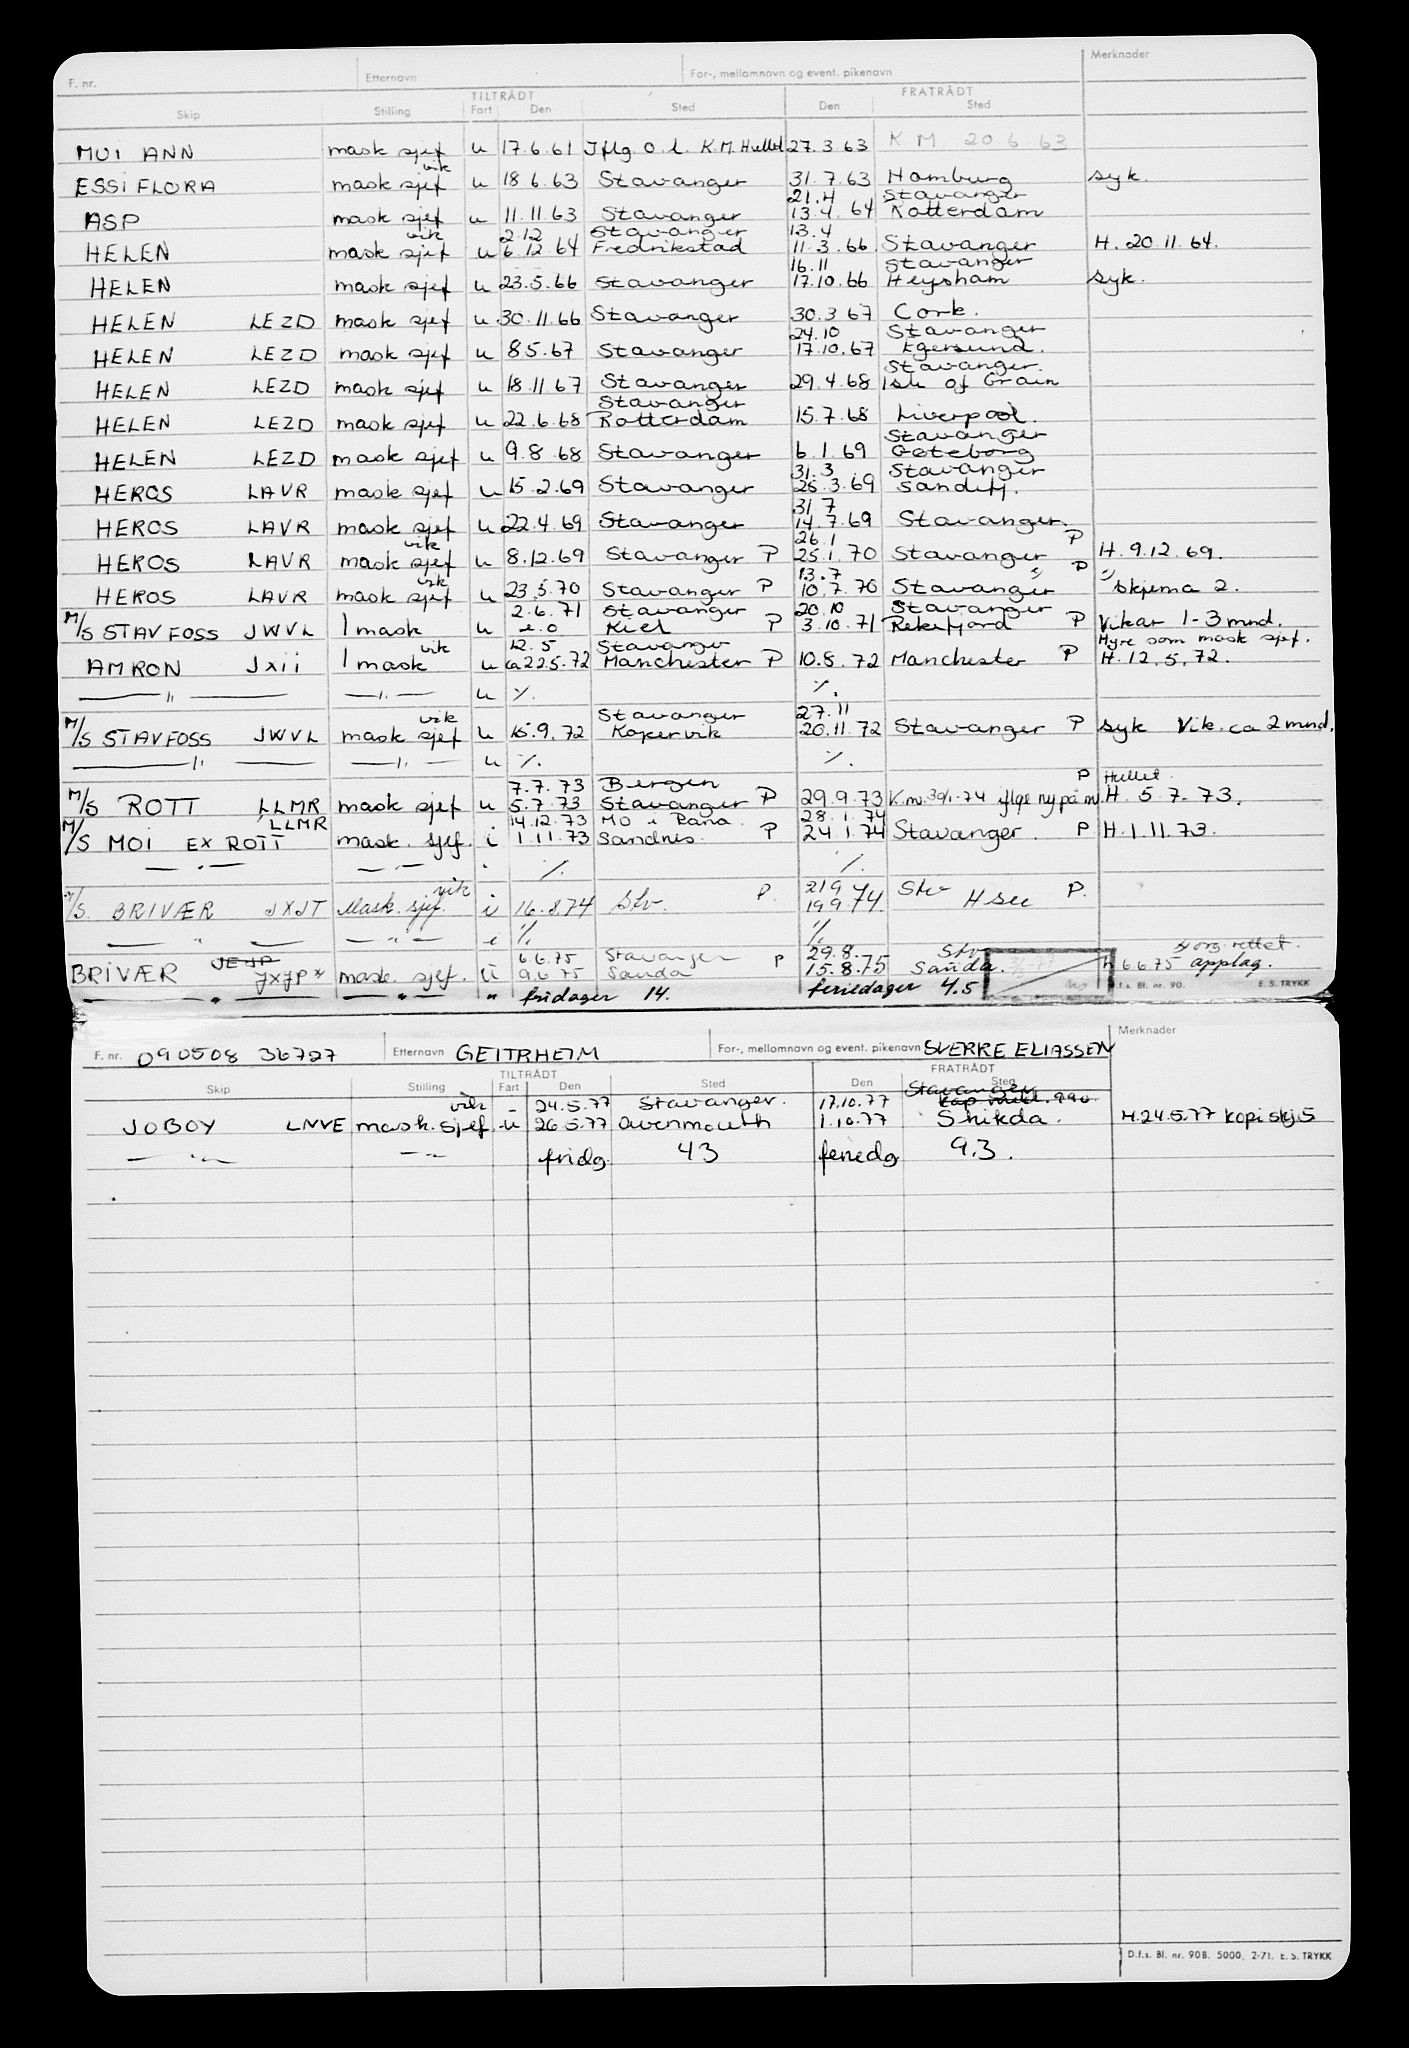 F. nr. Etternavn For-, mellomnavn og event. pikenavn Merknader
TILTRÅDT FRATRÅDT
Skip Stilling Fart Den Sted Den Sted
MUI ANN mask sjef u 17.6.61 Iflg. O.L. K.M. Hullet 27.3.63 K M 20 6 63
vik
ESSI FLORA mask sjef u 18.6.63 Stavanger 31.7.63 Hamburg syk.
21.4 Stavanger
ASP mask sjef u 11.11.63 Stavanger 13.4.64 Rotterdam
vik 2.12 Stavanger 13.4
HELEN mask sjef u 6.12.64 Fredrikstad 11.3.66 Stavanger H. 20.11.64.
16.11 Stavanger
HELEN mask sjef u 23.5.66 Stavanger 17.10.66 Heysham syk.
HELEN LEZD mask sjef u 30.11.66 Stavanger 30.3.67 Cork.
24.10 Stavanger
HELEN LEZD mask sjef u 8.5.67 Stavanger 17.10.67 Egersund.
Stavanger.
HELEN LEZD mask sjef u 18.11.67 Stavanger 29.4.68 Isle of Grain
Stavanger
HELEN LEZD mask sjef u 22.6.68 Rotterdam 15.7.68 Liverpool.
Stavanger
HELEN LEZD mask sjef u 9.8.68 Stavanger 6.1.69 Gøteborg
31.3 Stavanger
HEROS LAVR mask sjef u 15.2.69 Stavanger 25.3.69 Sandefj.
31.7
HEROS LAVR mask sjef u 22.4.69 Stavanger 14.7.69 Stavanger.
vik 26.1 P
HEROS LAVR mask sjef u 8.12.69 Stavanger P 25.1.70 Stavanger H. 9.12.69.
vik 13.7 P
HEROS LAVR mask sjef u 23.5.70 Stavanger P 10.7.70 Stavanger Skjema 2.
2.6.71 Stavanger 20.10 Stavanger
M/S STAVFOSS JWVL 1 mask u e.o Kiel P 3.10.71 Rekefjord P Vikar 1-3 mnd.
vik 12.5 Stavanger Hyre som mask sjef.
AMRON JXII 1 mask u ca 22.5.72 Manchester P 10.8.72 Manchester P H. 12.5.72.
— " — — " — u %. %.
vik Stavanger 27.11
M/S STAVFOSS JWVL mask sjef u 15.9.72 Kopervik 20.11.72 Stavanger P syk Vik. ca 2 mnd.
— " — — " — u %. %.
7.7.73 Bergen P Hullet.
M/S ROTT LLMR mask sjef u 5.7.73 Stavanger P 29.9.73 K.m. 30/1-74 iflge ny på m. H. 5.7.73.
LLMR 14.12.73 Mo i Rana 28.1.74
M/S MOI EX ROTT mask. sjef. i 1.11.73 Sandnes. P 24.1.74 Stavanger. P H. 1.11.73.
— " — — " — %. %.
vik 21 9
M/S. BRIVÆR JXJT Mask. sjef. i 16.8.74 Stv. P. 19 9 74. Stv H see P.
— " — — " — i %. %.
JEJP 6.6.75 Stavanger 29.8. Stv x/ org. rettet.
BRIVÆR JXJP x mask. sjef. u 9.6.75 Sauda P 15.8.75 Sauda. h 6.6.75 applag.
— " — — " — " fridager 14. feriedager 4.5
D.f.s. Bl. nr. 90. E. S. TRYKK
F. nr. 090508 36727 Etternavn GEITRHEIM For-, mellomnavn og event. pikenavn SVERRE ELIASSEN Merknader
TILTRÅDT FRATRÅDT
Skip Stilling Fart Den Sted Den Sted
Stavanger
vik 24.5.77 Stavanger. 17.10.77
JOBOY LNVE mask. sjef. u 26.5.77 Avonmouth 1.10.77 Skikda. H. 24.5.77 kopi skj. 5
— " — — " fridg 43 feriedg 9.3.
D.f.s. Bl. nr. 90B. 5000, 2-71. E. S. TRYKK